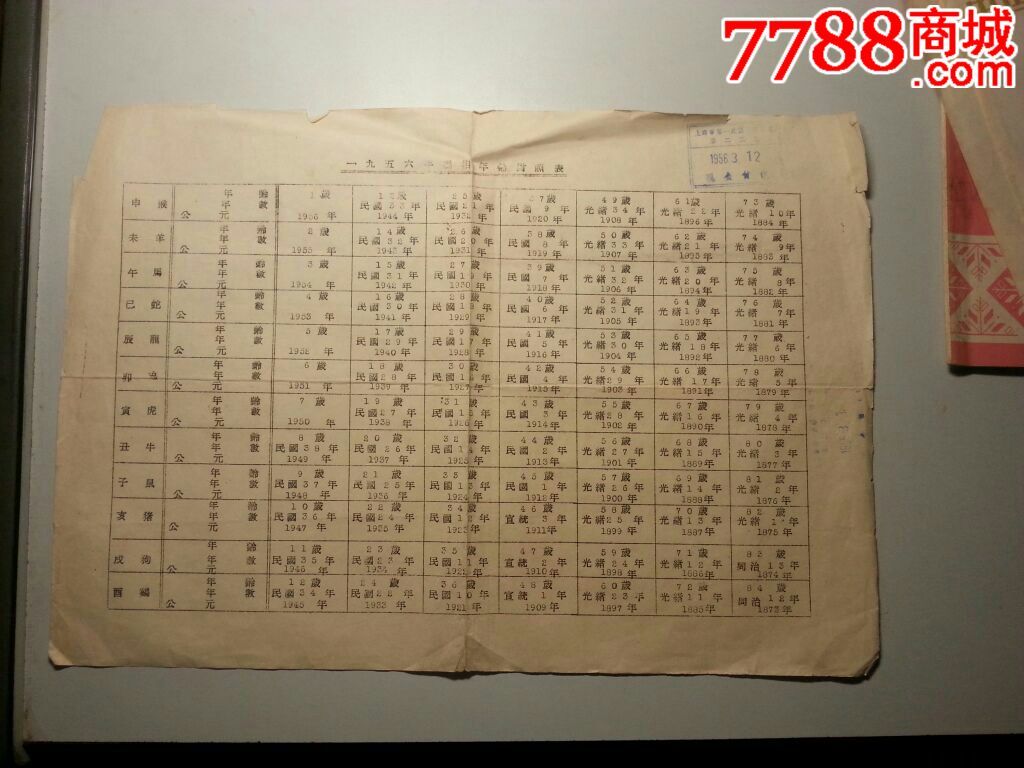 7788商城
.com
一九五六年 年齡對照表
1956.3.12
申猴 年齡 1歲 13歲 25歲 37歲 49歲 61歲 73歲
年數 民國33年 民國21年 民國9年 光緒34年 光緒22年 光緒10年
公元 1956年 1944年 1932年 1920年 1908年 1896年 1884年
未羊 年齡 2歲 14歲 26歲 38歲 50歲 62歲 74歲
年數 民國32年 民國20年 民國8年 光緒33年 光緒21年 光緒9年
公元 1955年 1943年 1931年 1919年 1907年 1895年 1883年
午馬 年齡 3歲 15歲 27歲 39歲 51歲 63歲 75歲
年數 民國31年 民國19年 民國7年 光緒32年 光緒20年 光緒8年
公元 1954年 1942年 1930年 1918年 1906年 1894年 1882年
己蛇 年齡 4歲 16歲 28歲 40歲 52歲 64歲 76歲
年數 民國30年 民國18年 民國6年 光緒31年 光緒19年 光緒7年
公元 1953年 1941年 1929年 1917年 1905年 1893年 1881年
辰龍 年齡 5歲 17歲 29歲 41歲 53歲 65歲 77歲
年數 民國29年 民國17年 民國5年 光緒30年 光緒18年 光緒6年
公元 1952年 1940年 1928年 1916年 1904年 1892年 1880年
卯兔 年齡 6歲 18歲 30歲 42歲 54歲 66歲 78歲
年數 民國28年 民國16年 民國4年 光緒29年 光緒17年 光緒5年
公元 1951年 1939年 1927年 1915年 1903年 1891年 1879年
寅虎 年齡 7歲 19歲 31歲 43歲 55歲 67歲 79歲
年數 民國27年 民國15年 民國3年 光緒28年 光緒16年 光緒4年
公元 1950年 1938年 1926年 1914年 1902年 1890年 1878年
丑牛 年齡 8歲 20歲 32歲 44歲 56歲 68歲 80歲
年數 民國38年 民國26年 民國14年 民國2年 光緒27年 光緒15年 光緒3年
公元 1949年 1937年 1925年 1913年 1901年 1889年 1877年
子鼠 年齡 9歲 21歲 33歲 45歲 57歲 69歲 81歲
年數 民國37年 民國25年 民國13年 民國1年 光緒26年 光緒14年 光緒2年
公元 1948年 1936年 1924年 1912年 1900年 1888年 1876年
亥猪 年齡 10歲 22歲 34歲 46歲 58歲 70歲 82歲
年數 民國36年 民國24年 民國12年 宣統3年 光緒25年 光緒13年 光緒1年
公元 1947年 1935年 1923年 1911年 1899年 1887年 1875年
戌狗 年齡 11歲 23歲 35歲 47歲 59歲 71歲 83歲
年數 民國35年 民國23年 民國11年 宣統2年 光緒24年 光緒12年 同治13年
公元 1946年 1934年 1922年 1910年 1898年 1886年 1874年
酉鷄 年齡 12歲 24歲 36歲 48歲 60歲 72歲 84歲
年數 民國34年 民國22年 民國10年 宣統1年 光緒23年 光緒11年 同治12年
公元 1945年 1933年 1921年 1909年 1897年 1885年 1873年